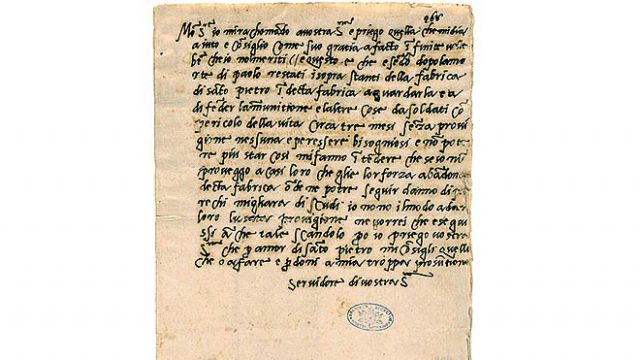 268
Mo S.re io mi rachomādo a vostra S.ria e priego quella che mi dia
aiuto e cōsiglio come suo gratia a facto ī finite volte
bē ch'io nol meriti e questo e che esēdo dopo la mo
rte di paolo restati i sopra stanti della fabrica
di sāto pietro ī detta fabrica a guardarla e a
difēder la munitione e laltre cose da soldati cō
pericolo della vita circa tre mesi sēza provi
gione nessuna e per essere bisogniosi e nō pote
re piu star cosi mi fanno ītēdere che se io nō
proveggo a casi loro che glie lor forza abādonar
decta fabrica ōde ne potre seguir danno di pa
rechi migliara di scudi io nō o il modo a dar
loro la provigione ne vorrei che se qui
ssi ā che tale scandolo po io priego vostra
S.ria che p amor di sāto pietro mi cōsigli quello
che o a fare e p doni a mia troppa prosūtione
servidore di vostra S.